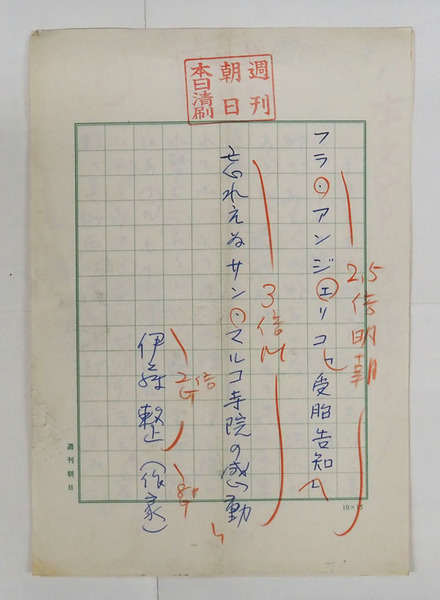 週刊
朝日
本日清刷
フラ・アンジェリコ「受胎告知」
2.5倍明朝
忘れえぬサン・マルコ寺院の感動
3倍M
伊藤整(作家)
2倍G
8P
G
週刊朝日
10×15